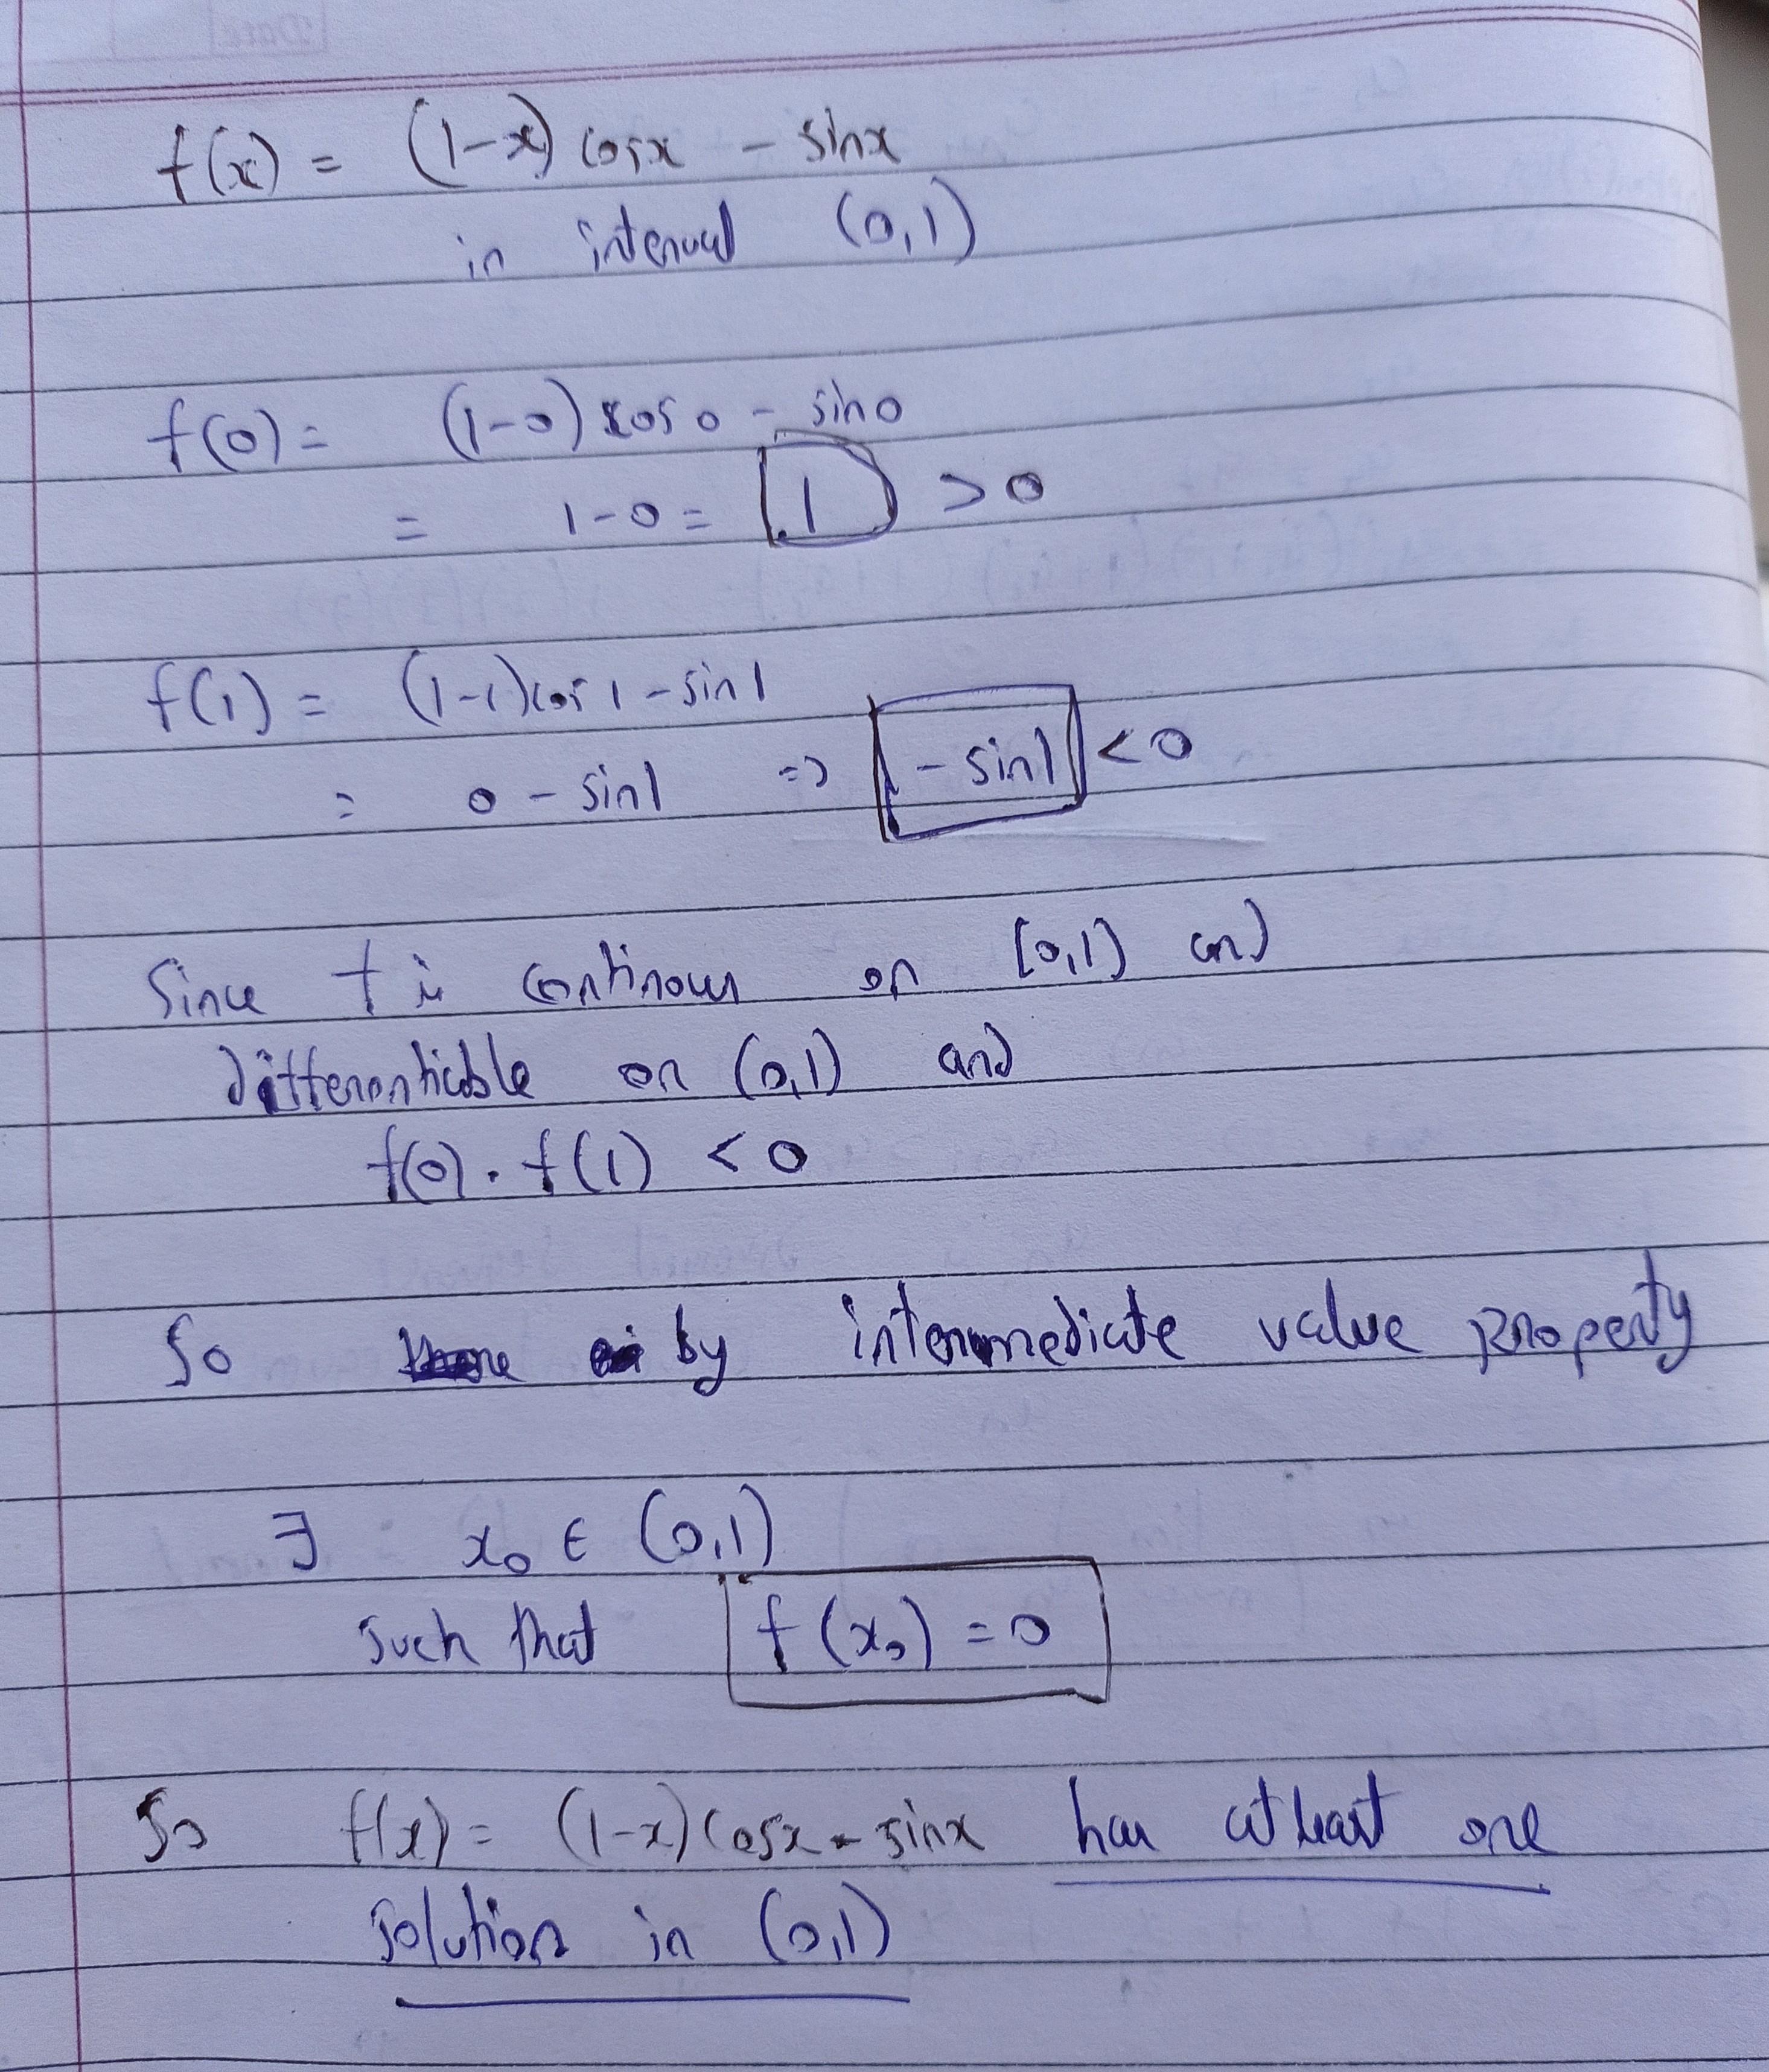 f(x) = (1-x) cosx - sinx
in interval (0,1)
f(0) = (1-0) cos0 - sin0
= 1-0 = 1 > 0
f(1) = (1-1)cos1 - sin1
= 0 - sin1 => -sin1 < 0
Since f is continous on [0,1] and
differentiable on (0,1) and
f(0) . f(1) < 0
So by intermediate value property
∃ x₀ ∈ (0,1)
such that f(x₀) = 0
So f(x) = (1-x) cosx - sinx has atleast one
solution in (0,1)